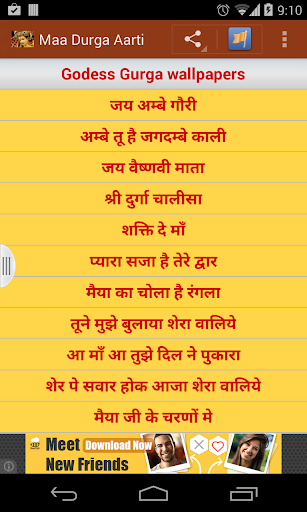 9:10
Maa Durga Aarti
Godess Gurga wallpapers
जय अम्बे गौरी
अम्बे तू है जगदम्बे काली
जय वैष्णवी माता
श्री दुर्गा चालीसा
शक्ति दे माँ
प्यारा सजा है तेरे द्वार
मैया का चोला है रंगला
तूने मुझे बुलाया शेरा वालिये
आ माँ आ तुझे दिल ने पुकारा
शेर पे सवार होक आजा शेरा वालिये
मैया जी के चरणों मे
Meet Download Now
New Friends